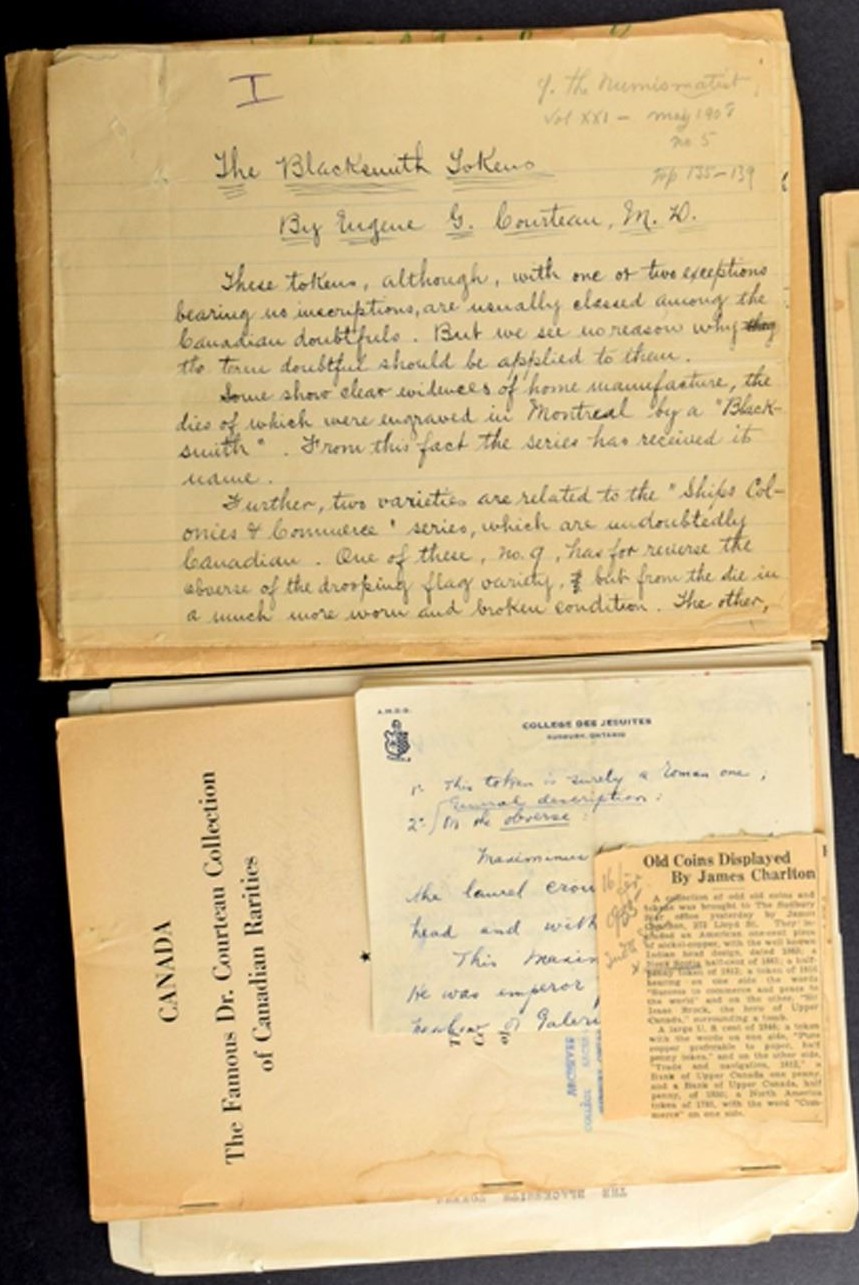 I
Numismatist
Vol XXI - May 1908
no 5
pp 135-139
The Blacksmith Tokens
By Eugene G. Courteau, M. D.
These tokens, although, with one or two exceptions
bearing no inscriptions, are usually classed among the
Canadian doubtfuls. But we see no reason why
the term doubtful should be applied to them.
Some show clear evidences of home manufacture, the
dies of which were engraved in Montreal by a "Black-
smith". From this fact the series has received it
name.
Further, two varieties are related to the "Ships Col-
onies & Commerce" series, which are undoubtedly
Canadian. One of these, no. 9, has for reverse the
obverse of the drooping flag variety, but from the die in
a much more worn and broken condition. The other,
CANADA
The Famous Dr. Courteau Collection
of Canadian Rarities
A.M.D.G.
COLLEGE DES JESUITES
SUDBURY, ONTARIO
1- This token is surely a Roman one;
General description:
2- On the obverse:
Maximinus
the laurel crow
head and with
This Maxim
He was emperor
of Galeri
Old Coins Displayed
By James Charlton
A collection of odd old coins and
tokens was brought to The Sudbury
Star office yesterday by James
Charlton, 272 Lloyd St. They in-
cluded an American one-cent piece
of nickel-copper, with the well known
Indian head design, dated 1863; a
Nova Scotia half-cent of 1861; a half-
penny token of 1812; a token of 1816
bearing on one side the words
"Success to commerce and peace to
the world" and on the other, "Sir
Isaac Brock, the hero of Upper
Canada," surrounding a tomb.
A large U. S. cent of 1848; a token
with the words on one side, "Pure
copper preferable to paper, half
penny token," and on the other side,
"Trade and navigation, 1812," a
Bank of Upper Canada one penny,
and a Bank of Upper Canada, half
penny, of 1850; a North America
token of 1781, with the word "Com-
merce" on one side.
THE BLACKSMITH TOKENS